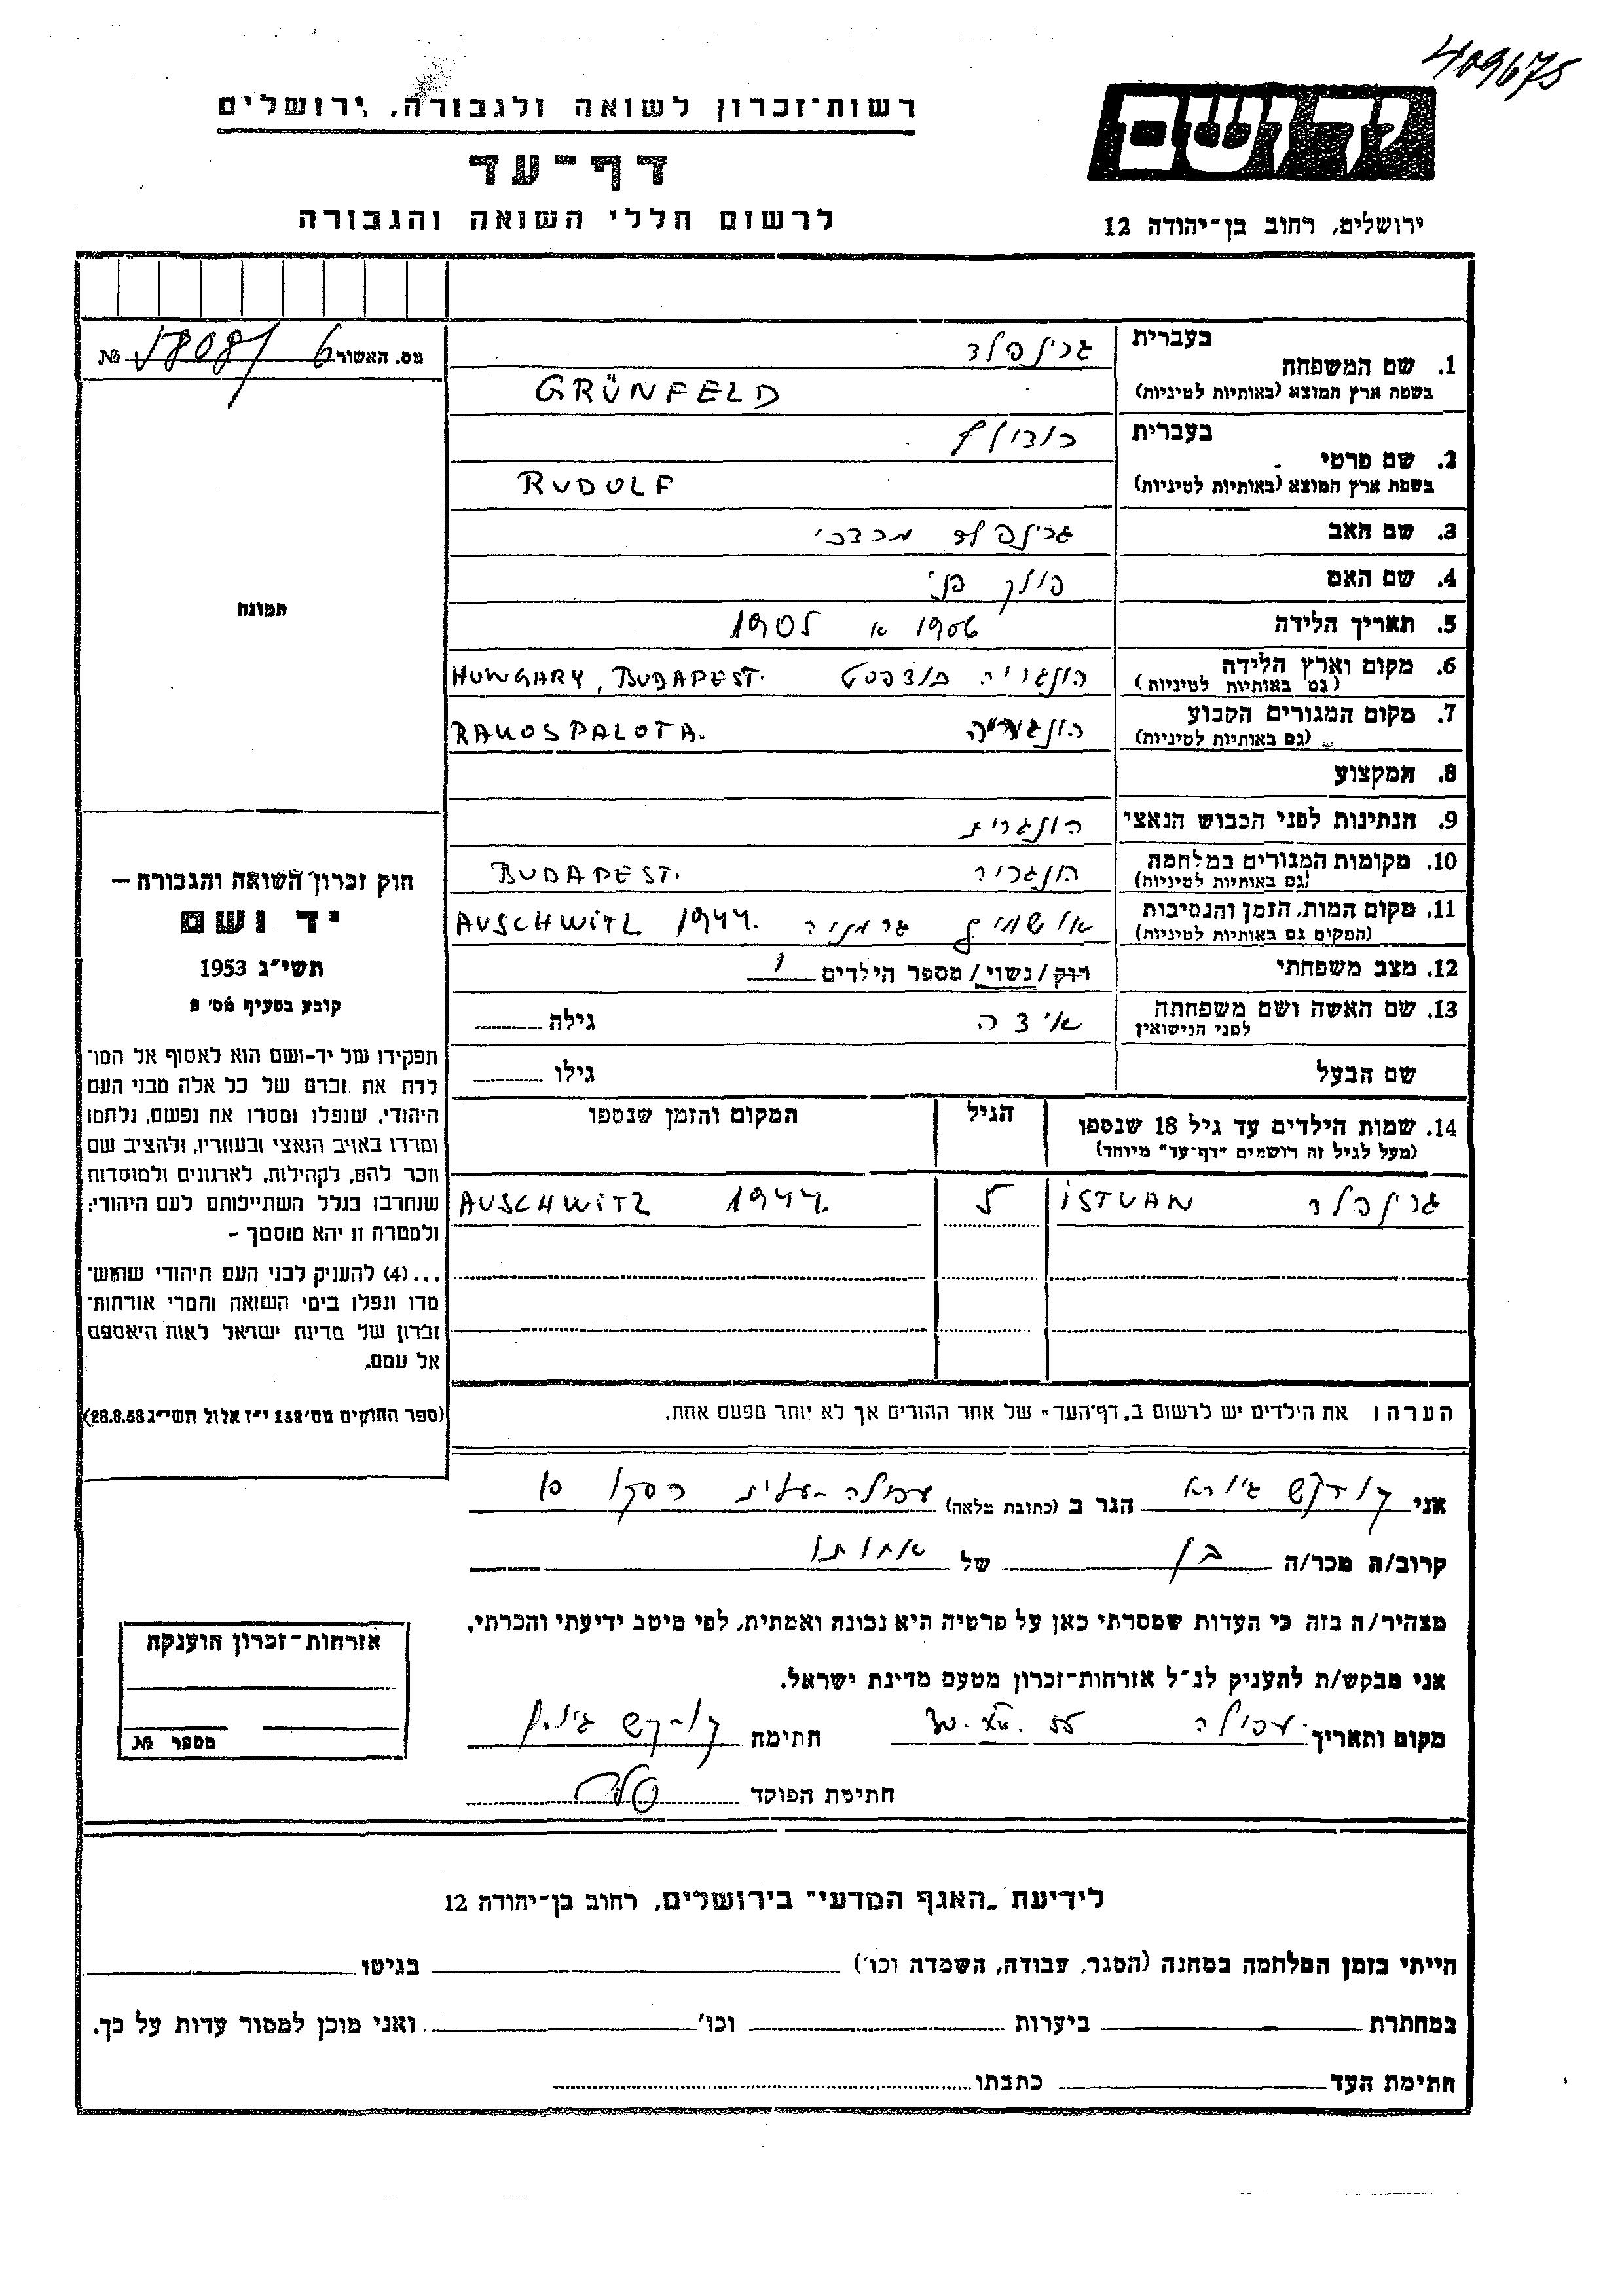 409675
יד ושם
רשות־זכרון לשואה ולגבורה, ירושלים
דף־עד
לרשום חללי השואה והגבורה
ירושלים, רחוב בן־יהודה 12
מס. האשור 6 №
1. שם המשפחה בעברית גרינפלד
בשפת ארץ המוצא (באותיות לטיניות) GRÜNFELD
2. שם פרטי בעברית רודולף
בשפת ארץ המוצא (באותיות לטיניות) RUDOLF
3. שם האב גרינפלד מרדכי
4. שם האם פולק פני
5. תאריך הלידה 1906 או 1905
6. מקום וארץ הלידה (גם באותיות לטיניות) הונגריה בודפסט HUNGARY, BUDAPEST.
7. מקום המגורים הקבוע (גם באותיות לטיניות) הונגריה RAKOSPALOTA.
8. המקצוע
9. הנתינות לפני הכבוש הנאצי הונגרית
10. מקומות המגורים במלחמה (גם באותיות לטיניות) הונגריה BUDAPEST.
11. מקום המות, הזמן והנסיבות (המקום גם באותיות לטיניות) אושוויץ גרמניה AUSCHWITZ 1944.
12. מצב משפחתי רווק/נשוי/ מספר הילדים 1
13. שם האשה ושם משפחתה לפני הנישואין גילה
שם הבעל גילו
14. שמות הילדים עד גיל 18 שנספו הגיל המקום והזמן שנספו
(מעל לגיל זה רושמים "דף־עד" מיוחד)
גרינפלד ISTVAN 5 AUSCHWITZ 1944.
הערה: את הילדים יש לרשום ב„דף־העד" של אחד ההורים אך לא יותר מפעם אחת.
תמונה
חוק זכרון השואה והגבורה —
יד ושם
תשי"ג 1953
קובע בסעיף מס' 2
תפקידו של יד-ושם הוא לאסוף אל המו־
לדת את זכרם של כל אלה מבני העם
היהודי, שנפלו ומסרו את נפשם, נלחמו
ומרדו באויב הנאצי ובעוזריו, ולהציב שם
וזכר להם, לקהילות, לארגונים ולמוסדות
שנחרבו בגלל השתייכותם לעם היהודי;
ולמטרה זו יהא מוסמך –
...(4) להעניק לבני העם היהודי שהוש־
מדו ונפלו בימי השואה והמרי אזרחות־
זכרון של מדינת ישראל לאות היאספם
אל עמם.
(ספר החוקים מס' 132 י"ז אלול תשי"ג 28.8.53)
אני הגר ב (כתובת מלאה) עפולה-עלית
קרוב/ה מכר/ה בן של אחותו
מצהיר/ה בזה כי העדות שמסרתי כאן על פרטיה היא נכונה ואמתית, לפי מיטב ידיעתי והכרתי.
אני מבקש/ת להעניק לנ"ל אזרחות־זכרון מטעם מדינת ישראל.
מקום ותאריך עפולה 55 חתימה
חתימת הפוקד
אזרחות־זכרון הוענקה
מספר №
לידיעת „האגף המדעי" בירושלים, רחוב בן־יהודה 12
הייתי בזמן המלחמה במחנה (הסגר, עבודה, השמדה וכו') בגיטו
במחתרת ביערות וכו' ואני מוכן למסור עדות על כך.
חתימת העד כתבתו